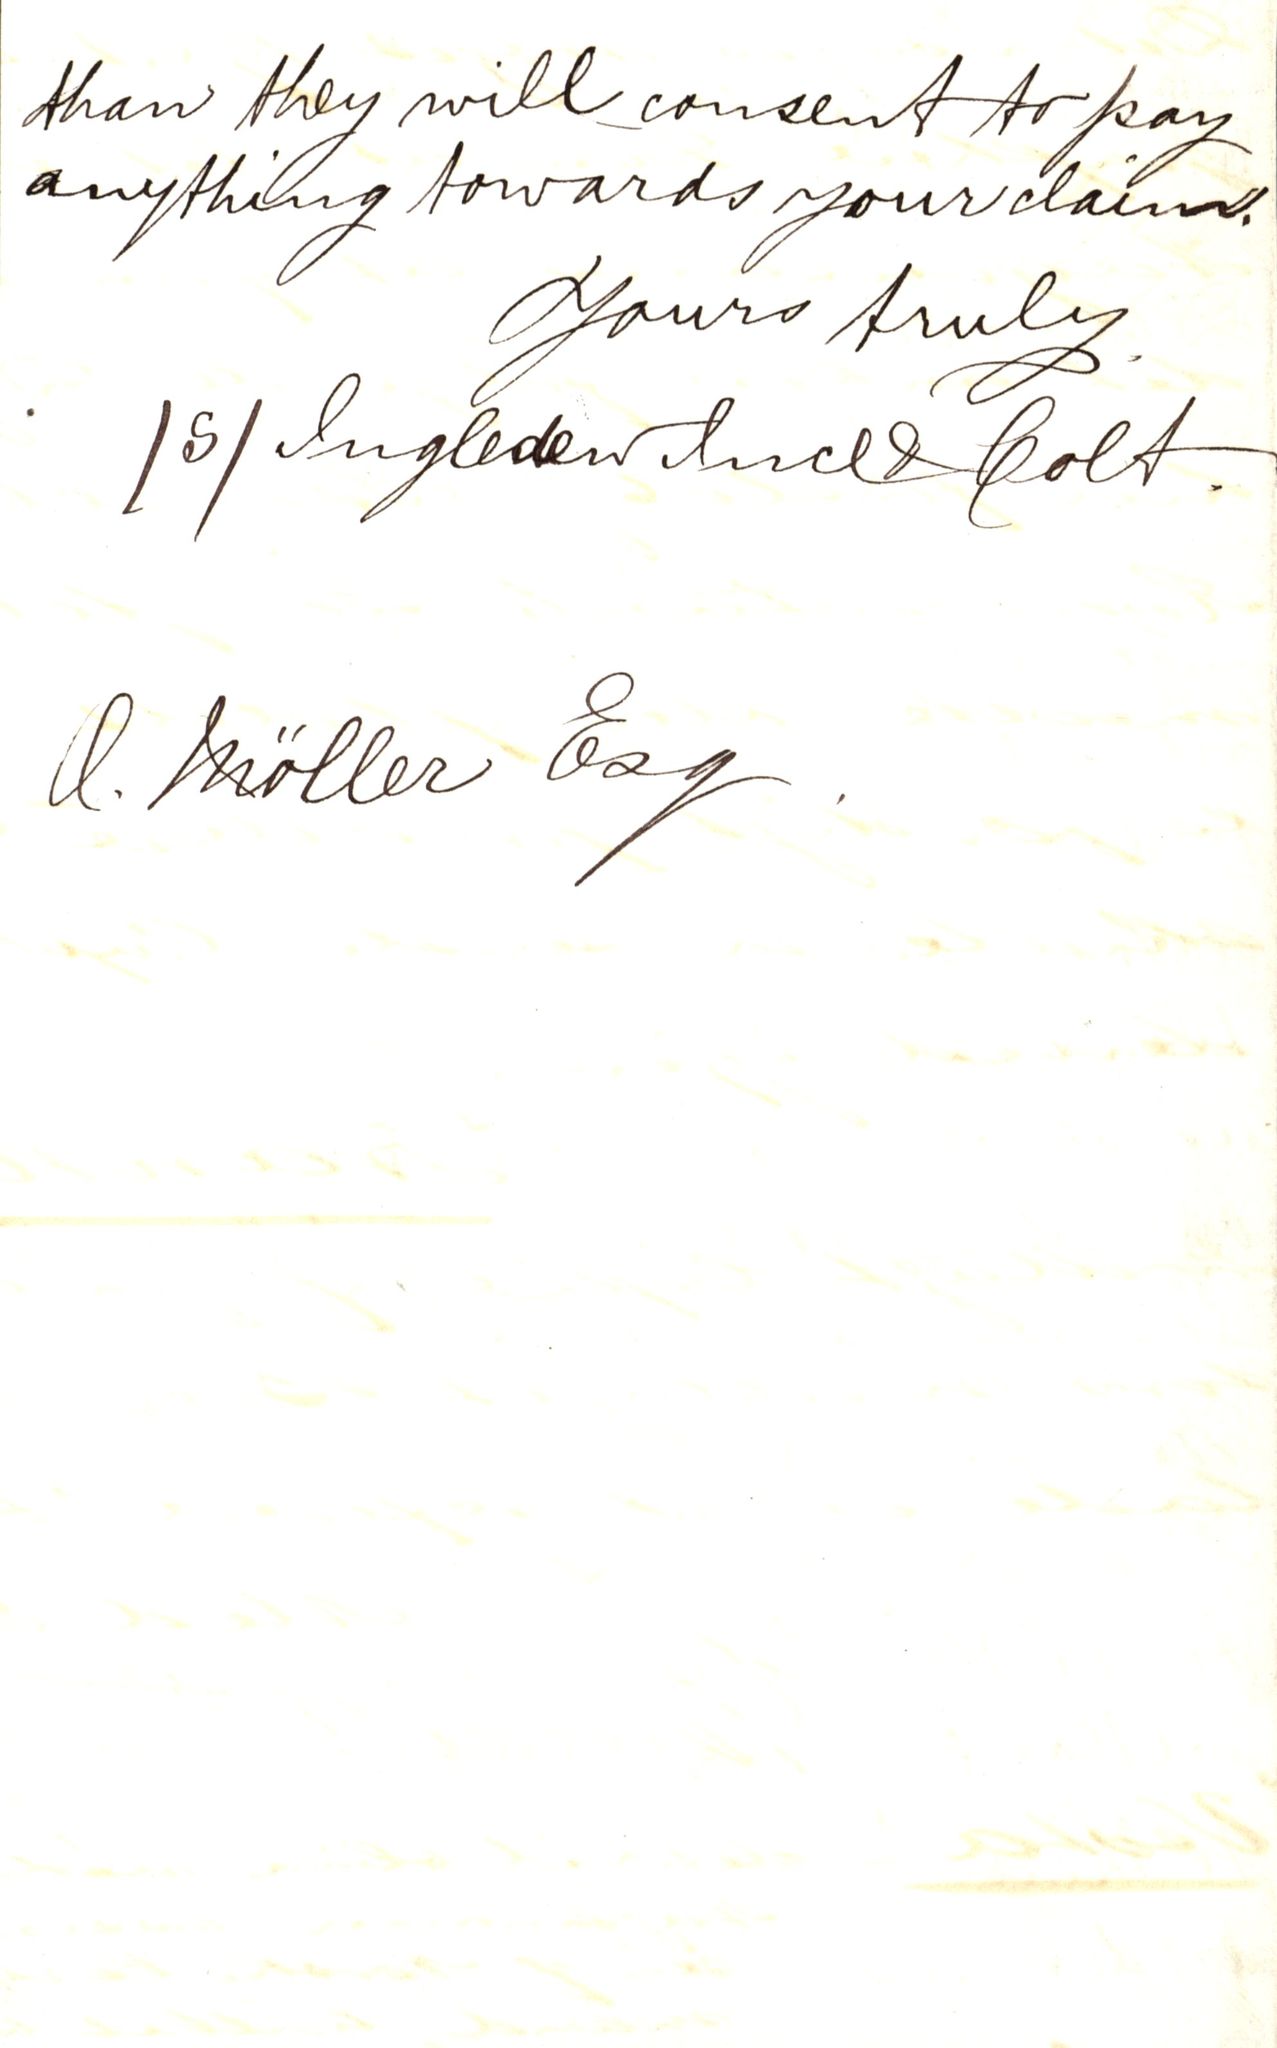 than they will consent to pay
anything towards your claim".
Yours truly.
/S/ Ingledew Ince & Colt.
O. Möller Esq.